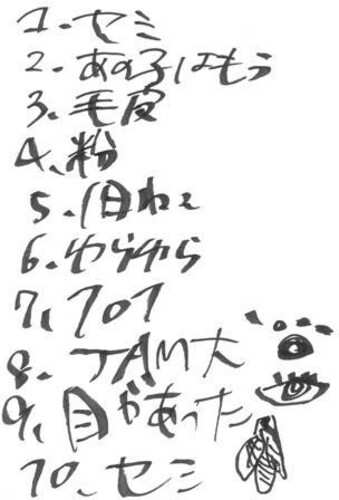 1. セミ
2. あの子はもう
3. 毛皮
4. 粉
5.
6. ゆらゆら
7、101
8. JAM大
9、目があった
10. セミ